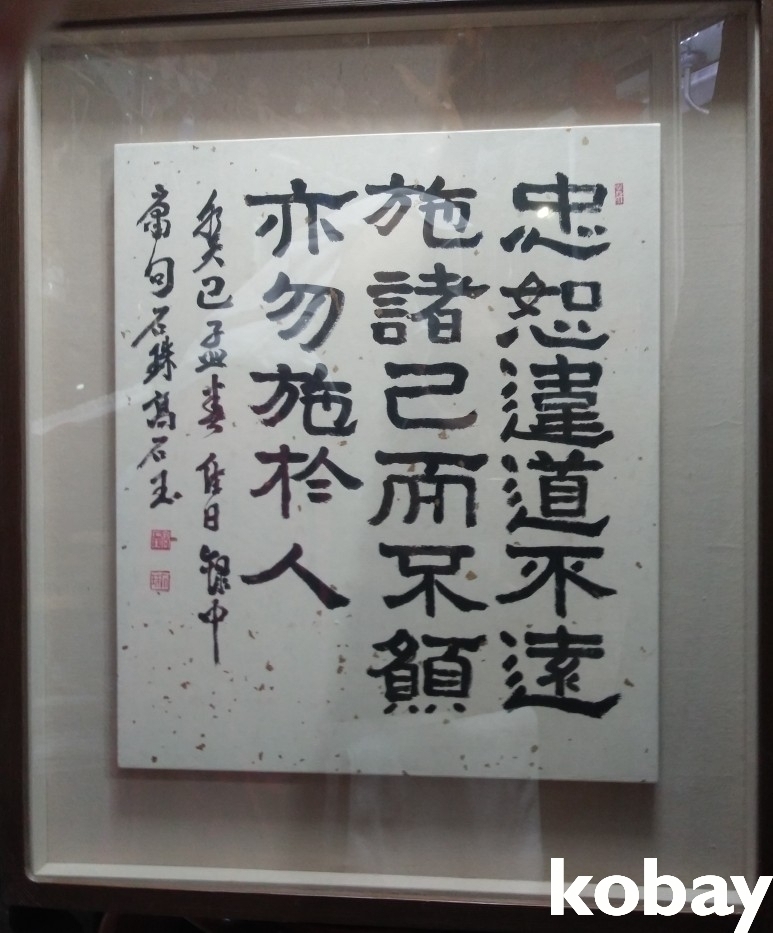 忠恕違道不遠
施諸己而不願
亦勿施於人
癸巳孟春佳日錄中
庸句石珠高石玉
kobay